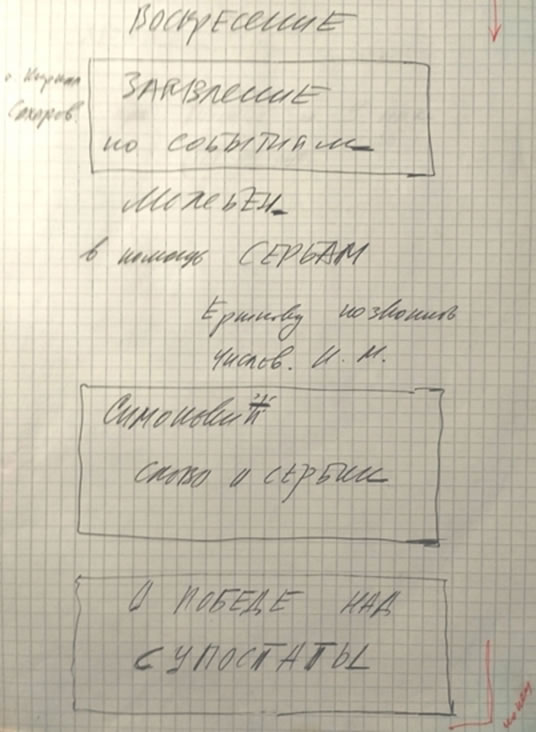 ВОСКРЕСЕНИЕ
о. Кирилл
Сахаров.
ЗАЯВЛЕНИЕ
по СОБЫТИЯМ
МОЛЕБЕН
в помощь СЕРБАМ
позвонить
Числов. И. М.
Симонович
слово о СЕРБИИ
О ПОБЕДЕ НАД
СУПОСТАТЫ